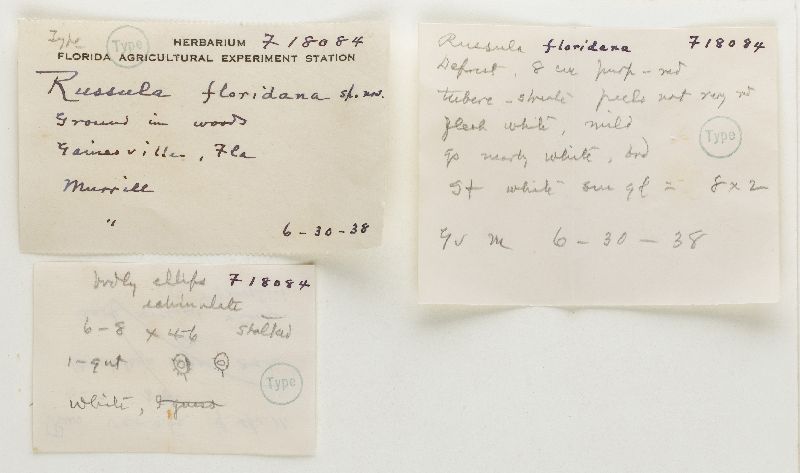 Type Type HERBARIUM F 18084
FLORIDA AGRICULTURAL EXPERIMENT STATION
Russula floridana sp. nov.
Ground in woods
Gainesville, Fla
Murrill
"
6-30-38
Russula floridana F18084
Deprest, 8 cm purp-red
tuberc-striate peels not very
flesh white, mild
Type
gs nearly white,
St white 8x2
Gv M 6-30-38
brdly ellips F 18084
echinulate
6-8 x 4-6 stalked
1-gut
Type
White,